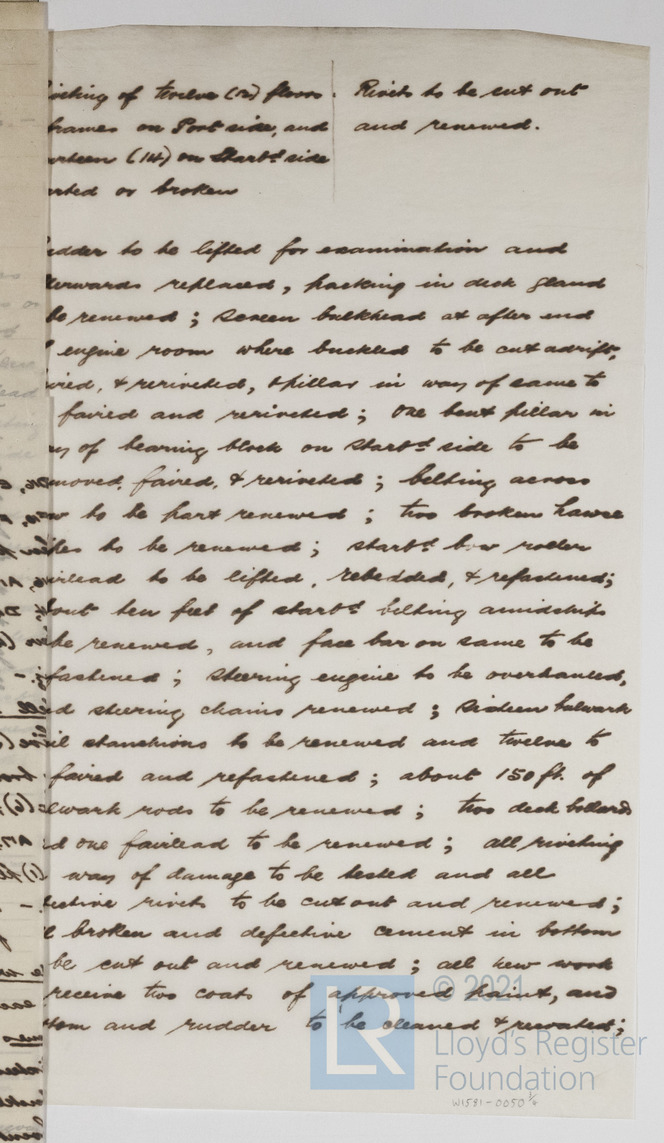 iveting of twelve (12) floors. Rivets to be cut out
frames on Port side, and and renewed.
urteen (14) on Starbd side
arted or broken
udder to be lifted for examination and
terwards replaced, packing in deck gland
be renewed; screen bulkhead at after end
engine room where buckled to be cut adrift,
ired, & reriveted, & pillar in way of same to
faired and reriveted; one bent pillar in
ay of bearing block on starbd side to be
moved, faired, & reriveted; belting across
ow to be part renewed; two broken hawse
pipes to be renewed; starbd bow roller
airlead to be lifted, rebedded, & refastened;
bout ten feet of starbd belting amidships
be renewed, and face bar on same to be
fastened; steering engine to be overhauled,
nd steering chains renewed; sixteen bulwark
il stanchions to be renewed and twelve to
faired and refastened; about 150 ft. of
lwark rods to be renewed; two deck bollards
d one fairlead to be renewed; all riveting
way of damage to be tested and all
fective rivets to be cut out and renewed;
l broken and defective cement in bottom
be cut out and renewed; all new work
receive two coats of approved paint, and
ttom and rudder to be cleaned & recoated;
© 2021
LR
Lloyd's Register
Foundation
W1581-0050 1/2